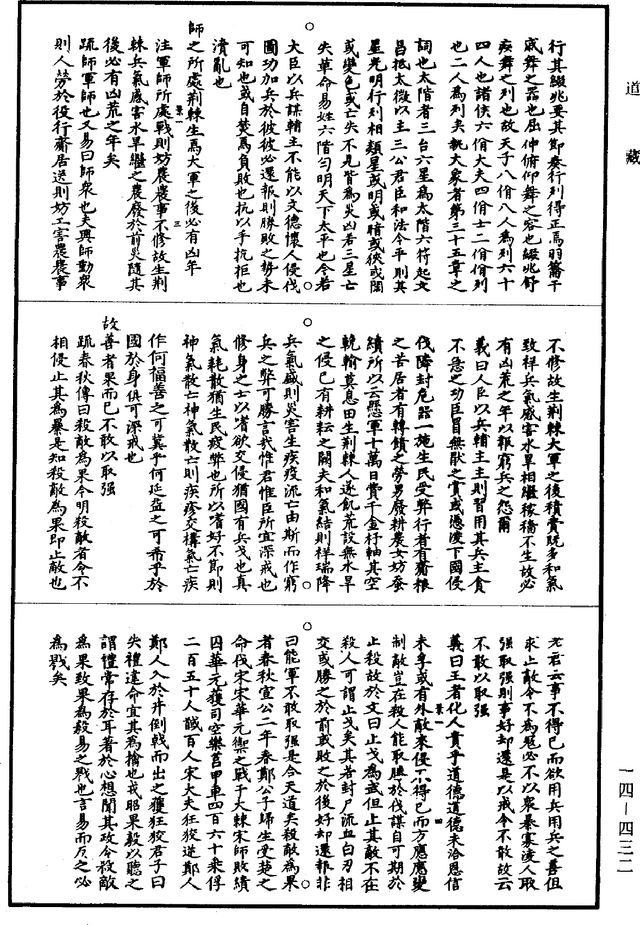 道藏
行其綴兆要其節奏行列得正焉羽籥干
戚舞之器也屈伸俯仰舞之容也綴兆舒
疾舞之列也故天子八佾八人為列六十
四人也諸侯六佾大夫四佾士二佾佾列
也二人為列矣執大象者第三十五章之
詞也太階者三台六星為太階六符起文
昌抵太微以主三公君臣和法令平則其
星光明行列相類星或明或暗或狹或闊
或變色或亡失不見皆為災凶若三星亡
失革命易姓六階勻明天下太平也令若
大臣以兵謀輔主不能以文德懷人侵伐
國功加兵於彼彼必還報則勝敗之勢未
可知也或自焚為負敗也抗以手抗拒也
潰亂也
師之所處荊棘生焉大軍之後必有凶年
注軍師所處戰則妨農農事不修故生荊
棘兵氣感害水旱繼之農廢於前災隨其
後必有凶荒之年矣
疏師軍師也又易曰師衆也夫興師動衆
則人勞於役行齎居送則妨工害農農事
不修故生荊棘大軍之後積費既多和氣
致祥兵氣感害水旱相繼稼穡不生故必
有凶荒之年以報窮兵之怨爾
義曰人臣以兵輔主主則皆用其兵主貪
不急之功臣冒無猒之賞或憑凌下國侵
伐隣封危器一施生民受弊行者有齎粮
之苦居者有轉餽之勞男廢耕農女妨蚕
績所以云懸軍十萬日賞千金杼軸其空
輓輸莫息田生荊棘人遂飢荒設無水旱
之侵已有耕耘之闕夫和氣結則祥瑞降
兵氣感則災害生疾疫流亡由斯而作窮
兵之弊可勝言哉惟君惟臣所宜深戒也
修身之士以嗜欲交侵猶國有兵戈也真
氣耗散猶生民疲弊也所以嗜好不節則
神氣散亡神氣散亡則疾疹交構氣亡疾
作何福善之可冀乎何延益之可希乎於
國於身俱可深戒也
故善者果而已不敢以取强
疏春秋傳曰殺敵為果今明殺敵者令不
相侵止其為暴是知殺敵為果即止敵也
老君云事不得已而欲用兵用兵之善但
求止敵令不為寇必不以衆暴寡凌人取
强取强則事好却還是以戒令不敢故云
不敢以取强
義曰王者化人貴乎道德道德未洽恩信
未孚或有外敵來侵不得已而方應應變
制敵豈在殺人能取勝於伐謀自可期於
止殺故於文曰止戈為武但止其敵不在
殺人可謂止戈矣其若封尸流血白刃相
交或勝之於前或敗之於後好却還報非
曰能軍不敢取强是合天道矣殺敵為果
者春秋宣公二年春鄭公子歸生受楚之
命伐宋宋華元禦之戰于大棘宋師敗績
囚華元獲司空樂莒甲車四百六十乘俘
二百五十人馘百人宋大夫狂狡逆鄭人
鄭人入於井倒戟而出之獲狂狡君子曰
失禮違命宜其為擒也戎昭果毅以聽之
謂禮常存於耳著於心想聞其政令殺敵
為果致果為毅易之戮也言易而反之必
為戮矣
一四-四三二